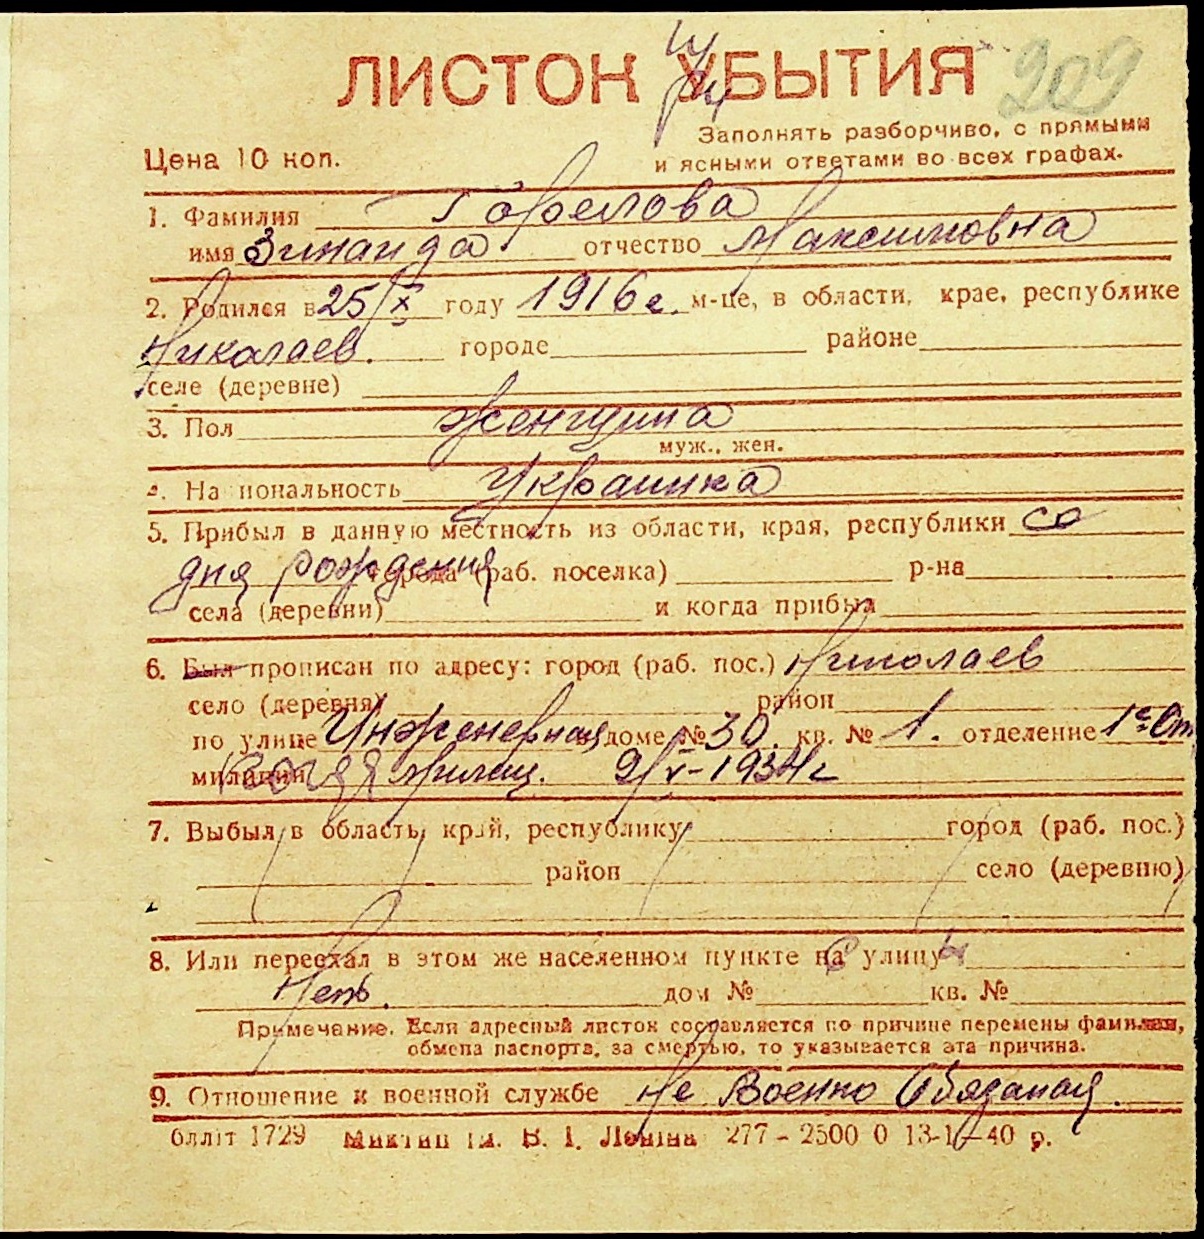 ЛИСТОК УБЫТИЯ 209
Заполнять разборчиво, с прямыми
Цена 10 коп. и ясными ответами во всех графах.
1. Фамилия Горелова
имя Зинаида отчество Максимовна
2. Родился в 25/X году 1916 г. м-це, в области, крае, республике
Николаев. городе районе
селе (деревне)
3. Пол Женщина
муж., жен.
Национальность Украинка
5. Прибыл в данную местность из области, края, республики со
дня рождения города (раб. поселка) р-на
села (деревни) и когда прибыл
6. Был прописан по адресу: город (раб. пос.) Николаев
село (деревня) район
по улице Инженерная в доме № 30. кв. № 1. отделение 1е От
милиции милиц. 9/V-1934 г
7. Выбыл в область, край, республику город (раб. пос.)
район село (деревню)
8. Или переехал в этом же населенном пункте на улицу
Нет. дом № кв. №
Примечание. Если адресный листок составляется по причине перемены фамилии,
обмена паспорта, за смертью, то указывается эта причина.
9. Отношение к военной службе Не Военно Обязаная.
1729 ім. В. І. Леніна 277 - 2500 0 40 р.